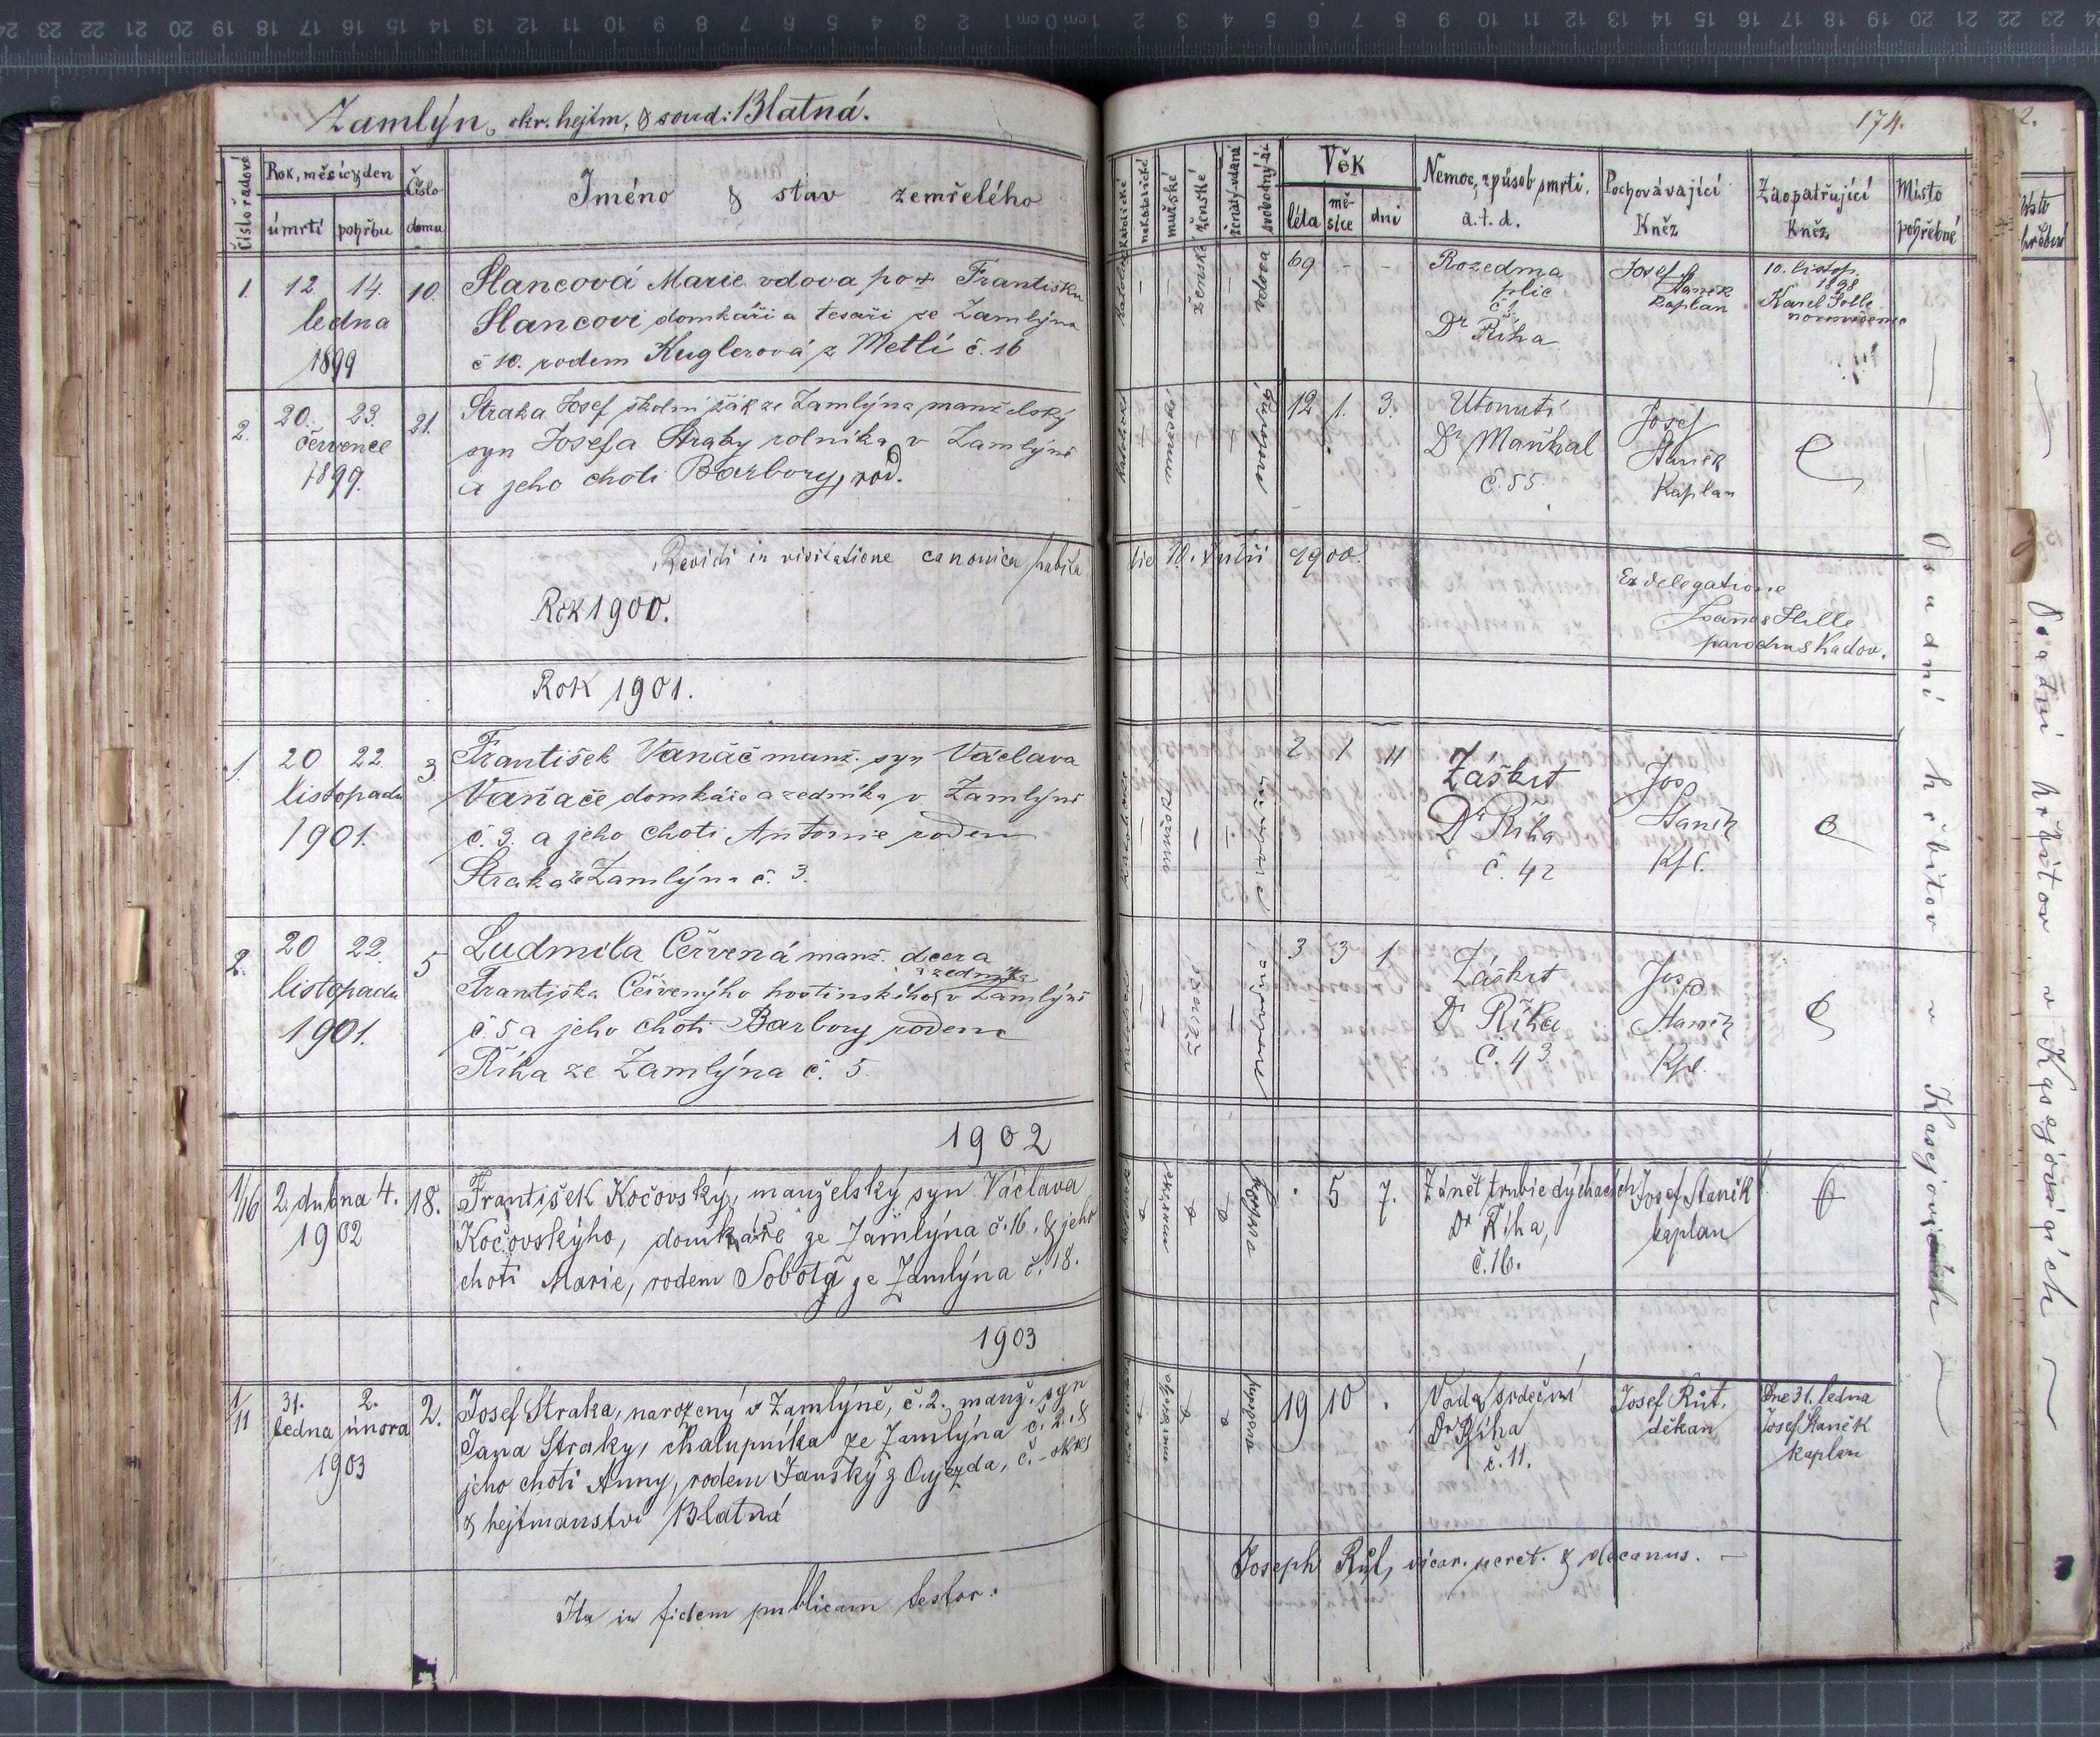 Zamlýn, okr. hejtm. & soud: Blatná.
174.
Číslo řadové
Rok, měsíc, den
úmrtí
pohřbu
Číslo domu
Jméno & stav zemřelého
katolické
nekatolické
mužské
ženské
ženatý-vdaná
svobodný-á
Věk
léta
měsíce
dni
Nemoc, způsob smrti,
a. t. d.
Pochovávající
Kněz
Zaopatřující
Kněz
Místo
pohřební
1. 12. 14. 10.
ledna
1899
Slancová Marie vdova po Františku
Slancovi domkáři a tesaři ze Zamlýna
č 10. rodem Kuglerová z Metlí č. 16
ženské
vdova
69 - -
Rozedma
plic
Dr Říha
Josef
Staněk
kaplan
10. listop.
1898
Karel
2. 20. 23. 21.
července
1899.
Straka Josef školní žák ze Zamlýna manželský
syn Josefa Straky rolníka v Zamlýně
a jeho choti Barbory, rod.
12 1. 3.
Utonutí
Dr Maršál
č. 55.
Josef
Staněk
Kaplan
Revidi in visitatione canonica habita
die 10. Julii 1900.
Rok 1900.
Ex delegatione
Hille
parochus Kadov.
Rok 1901.
1. 20 22. 3
listopadu
1901.
František Vanáč manž. syn Václava
Vaňače domkáře a zedníka v Zamlýně
č. 3. a jeho choti Antonie rodem
Straka ze Zamlýna č. 3.
2 1 11
Záškrt
Dr Říha
č. 42
Jos
Staněk
Kpl.
2. 20 22. 5
listopadu
1901.
Ludmila Červená manž. dcera
a zedníka
Františka Červenýho hostinského v Zamlýně
č. 5 a jeho choti Barbory rodem
Říha ze Zamlýna č. 5.
ženské
3 3 1
Záškrt
Dr Říha
č. 43.
Jos
Staněk
Kpl.
1902
1/16 2. dubna 4. 18.
1902
František Kočovský, manželský syn Václava
Kočovskýho, domkáře ze Zamlýna č. 16. & jeho
choti Marie, rodem Sobotá ze Zamlýna č. 18.
5 7.
Zánět trubic dýchacích
Dr Říha,
č. 16.
Josef Staněk
kaplan
1903
1/11 31. 2. 2.
ledna února
1903
Josef Straka, narozený v Zamlýně, č. 2. manž. syn
Jana Straky, chalupníka ze Zamlýna č. 2. &
jeho choti Anny, rodem Janský z Oujezda, č. - okres
& hejtmanství Blatná
svobodný
19 10
Vada srdeční
Dr Říha
č. 11.
Josef Růt,
děkan
Dne 31. ledna
Josef Staněk
kaplan
Osadní hřbitov v Kasejovicích
Ita in fidem publicam testor:
Joseph Růt, vicar. secret. & decanus.
Osadní hřbitov v Kasejovicích